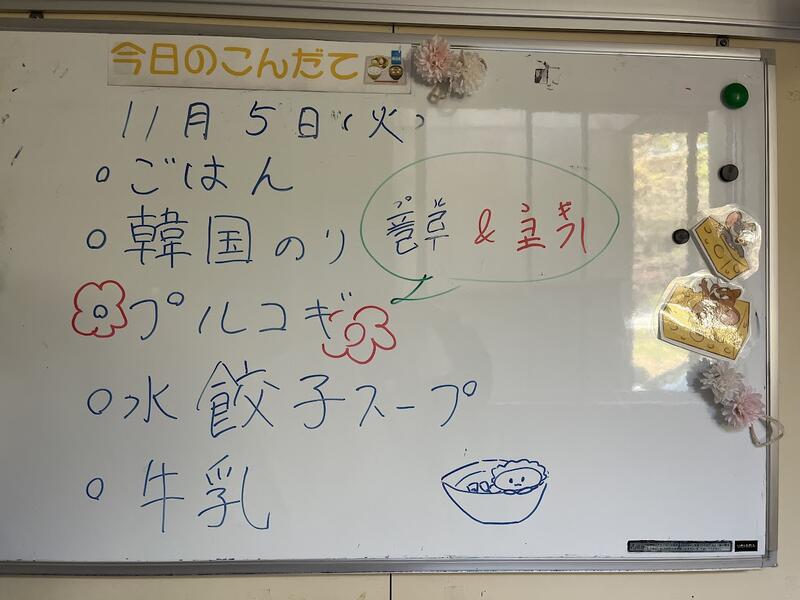 今日のこんだて
11月5日(火)
ごはん
韓国のり
プルコギ
プル
&
コギ
水餃子スープ
牛乳